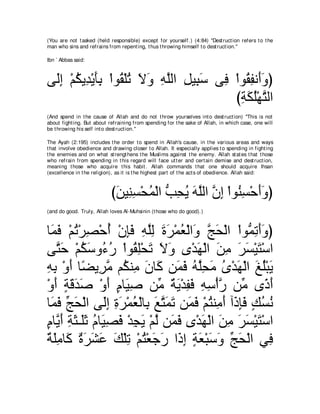 (You are not tasked (held responsible) except for yourself.) (4:84) "Destruction refers to the
man who sins and refrains from repenting, thus throwing himself to destruction."
Ibn `Abbas said:
(وَأَنفِقُواْ فِى سَبِيلِ اللَّهِ وَلاَ تُلْقُواْ بِأَيْدِيكُمْ إِلَى
التَّهْلُكَةِ)
(And spend in the cause of Allah and do not throw yourselves into destruction) "This is not
about fighting. But about refraining from spending for the sake of Allah, in which case, one will
be throwing his self into destruction."
The Ayah (2:195) includes the order to spend in Allah's cause, in the various areas and ways
that involve obedience and drawing closer to Allah. It especially applies to spending in fighting
the enemies and on what strengthens the Muslims against the enemy. Allah states that those
who refrain from spending in this regard will face utter and certain demise and destruction,
meaning those who acquire this habit. Allah commands that one should acquire Ihsan
(excellence in the religion), as it is the highest part of the acts of obedience. Allah said:
(وَأَحْسِنُواْ إِنَّ اللَّهَ يُحِبُّ الْمُحْسِنِينَ)
(and do good. Truly, Allah loves Al-Muhsinin (those who do good).)
(وَأَتِمُّواْ الْحَجَّ وَالْعُمْرَةَ لِلَّهِ فَإِنْ أُحْصِرْتُمْ فَمَا
اسْتَيْسَرَ مِنَ الْهَدْىِ وَلاَ تَحْلِقُواْ رُءُوسَكُمْ حَتَّى
يَبْلُغَ الْهَدْىُ مَحِلَّهُ فَمَن كَانَ مِنكُم مَّرِيضًا أَوْ بِهِ
أَذًى مِّن رَّأْسِهِ فَفِدْيَةٌ مِّن صِيَامٍ أَوْ صَدَقَةٍ أَوْ
نُسُكٍ فَإِذَآ أَمِنتُمْ فَمَن تَمَتَّعَ بِالْعُمْرَةِ إِلَى الْحَجِّ فَمَا
اسْتَيْسَرَ مِنَ الْهَدْىِ فَمَن لَّمْ يَجِدْ فَصِيَامُ ثَلَـثَةِ أَيَّامٍ
فِي الْحَجِّ وَسَبْعَةٍ إِذَا رَجَعْتُمْ تِلْكَ عَشَرَةٌ كَامِلَةٌ